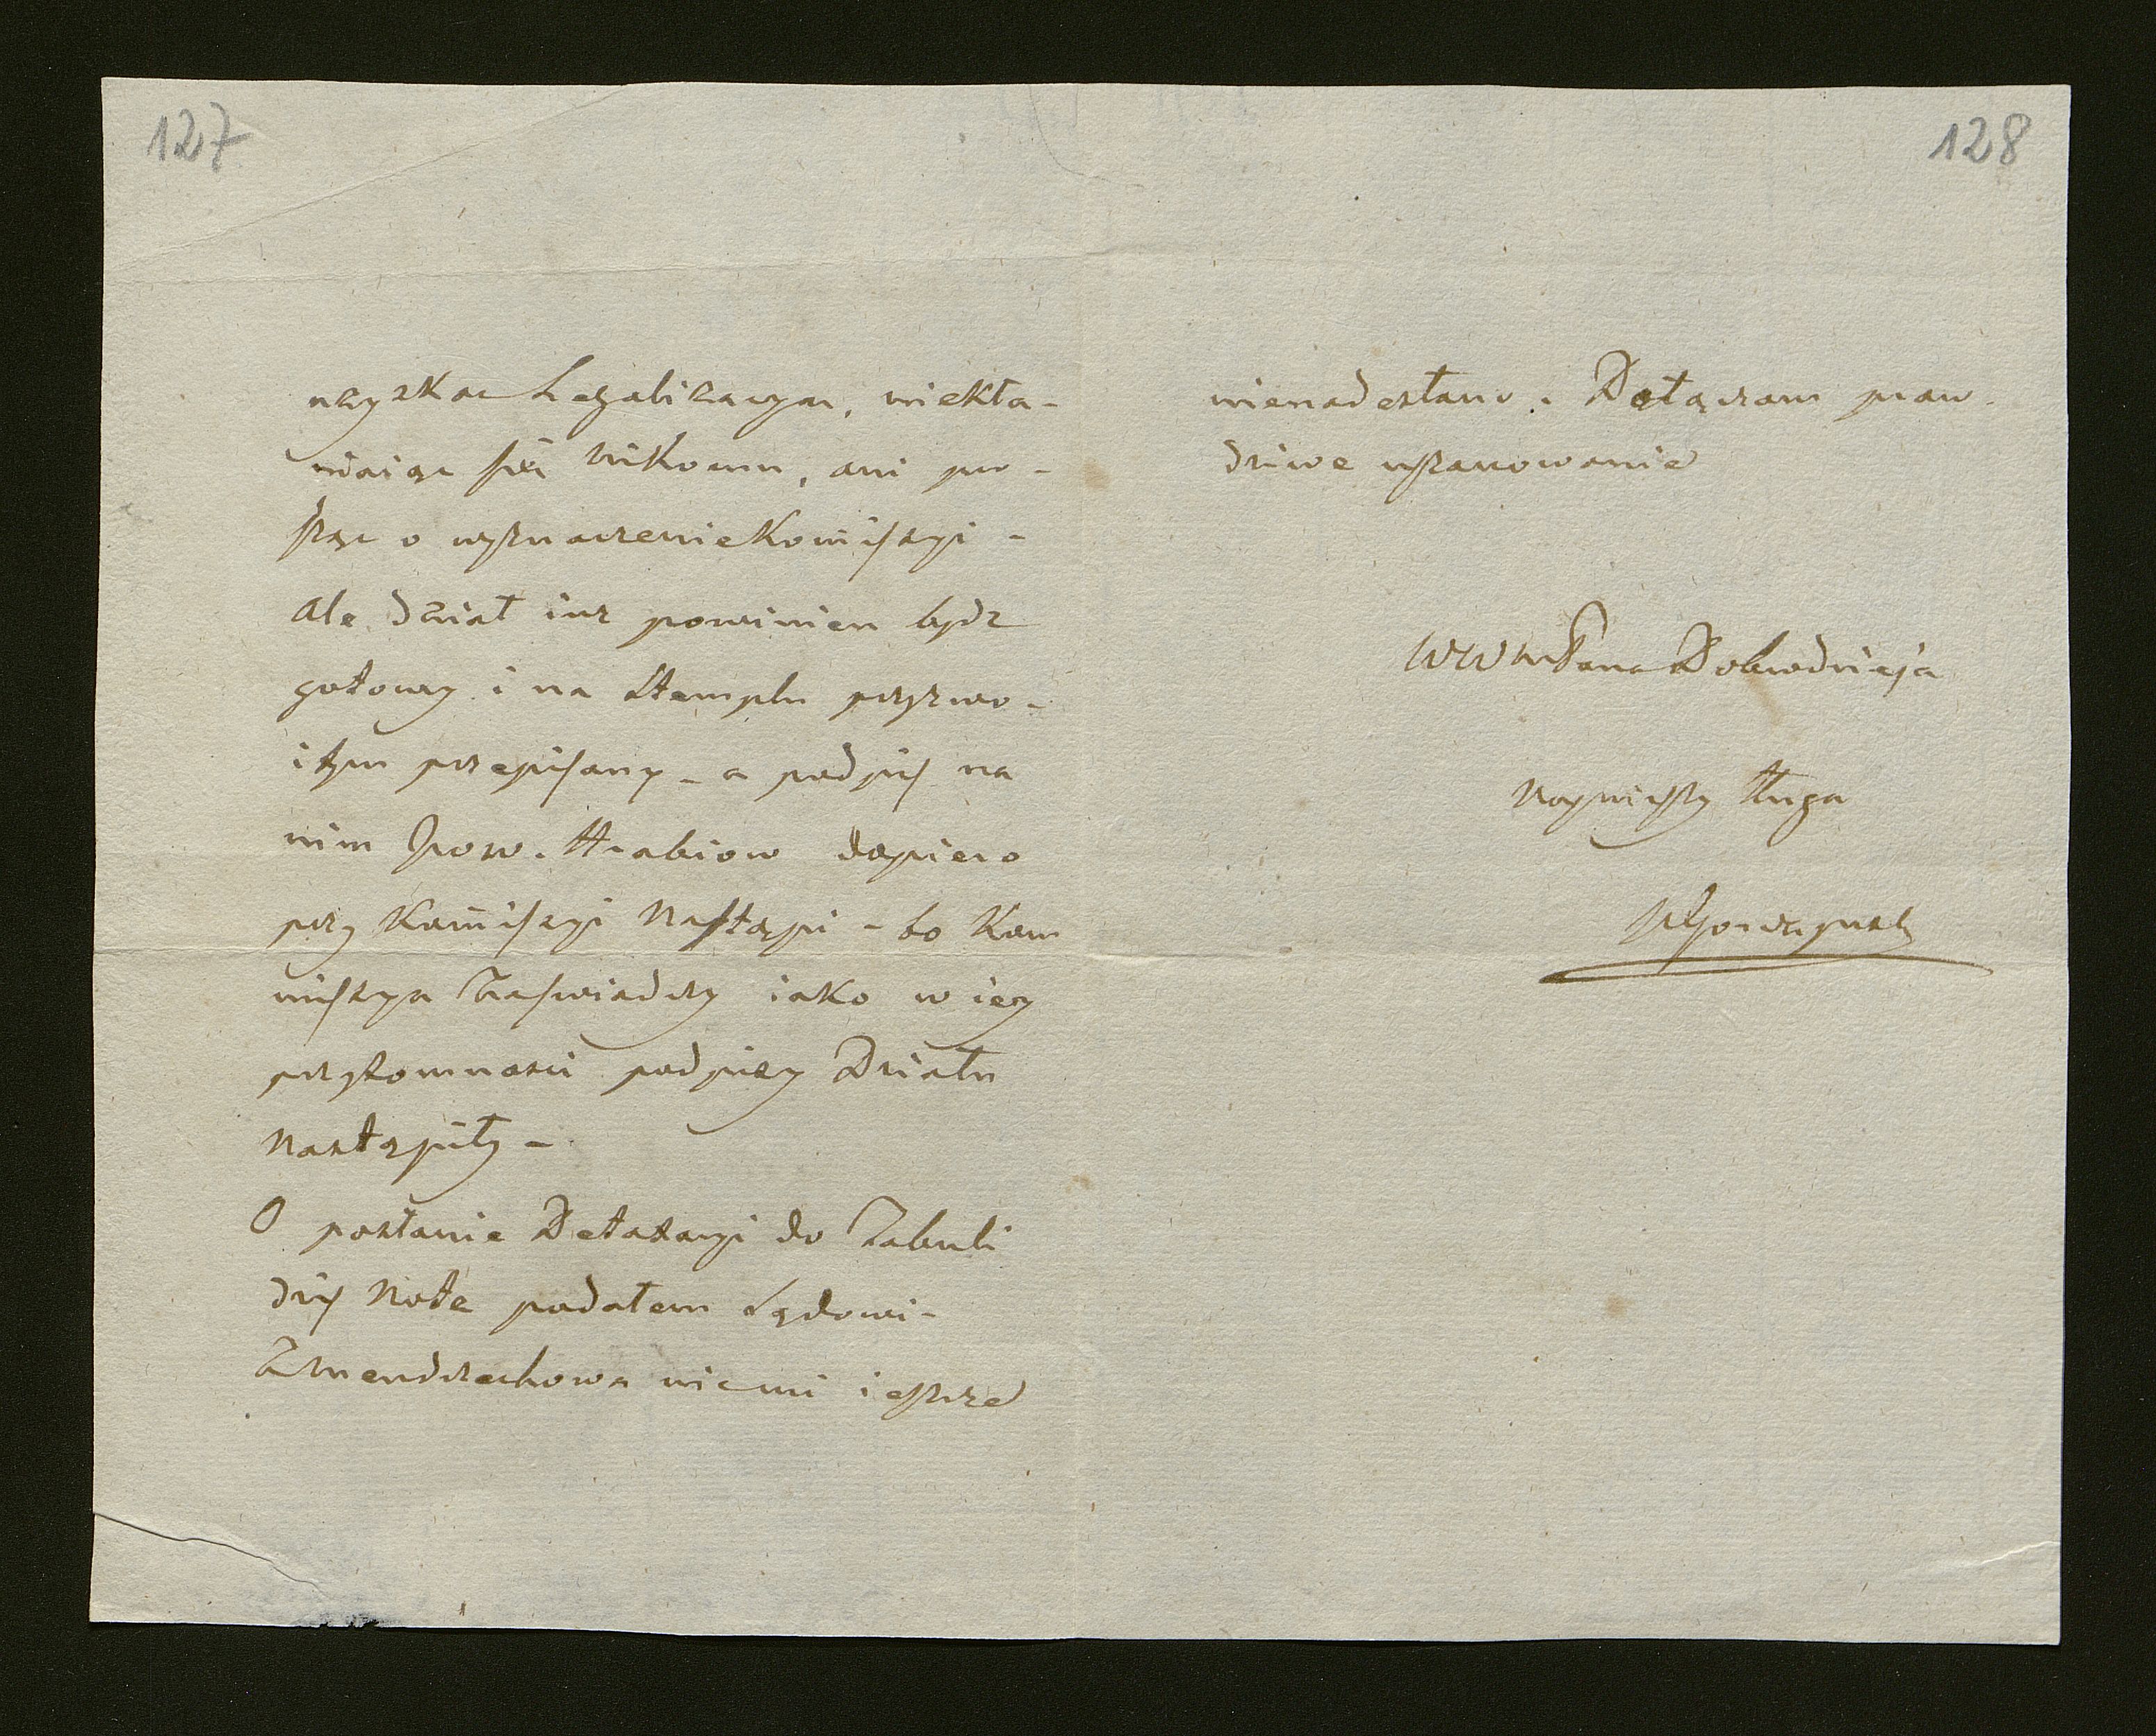 127
uzyskac Legalizacyą, niekła-
niaiąc się nikomu, ani pro-
sząc o wyznaczenie Kom̄issyi -
ale dział iuż powinien bydz
gotowy i na stemplu przyzwo-
itym przepisany - a podpis na
nim JWW. Hrabiow dopiero
przy Kom̄issyi nastąpi - bo Kom
missya zaswiadczy iako w iey
przytomnosci podpisy Działu
nastąpiły -
O posłanie Detaxacyi do Tabuli
dziś Note podałem Sądowi -
Z Mendrzechowa nic mi ieszcze
128
nienadesłano. Dołączam praw-
dziwe uszanowanie
WWM Pana Dobrodzieja
Nayniższy sługa